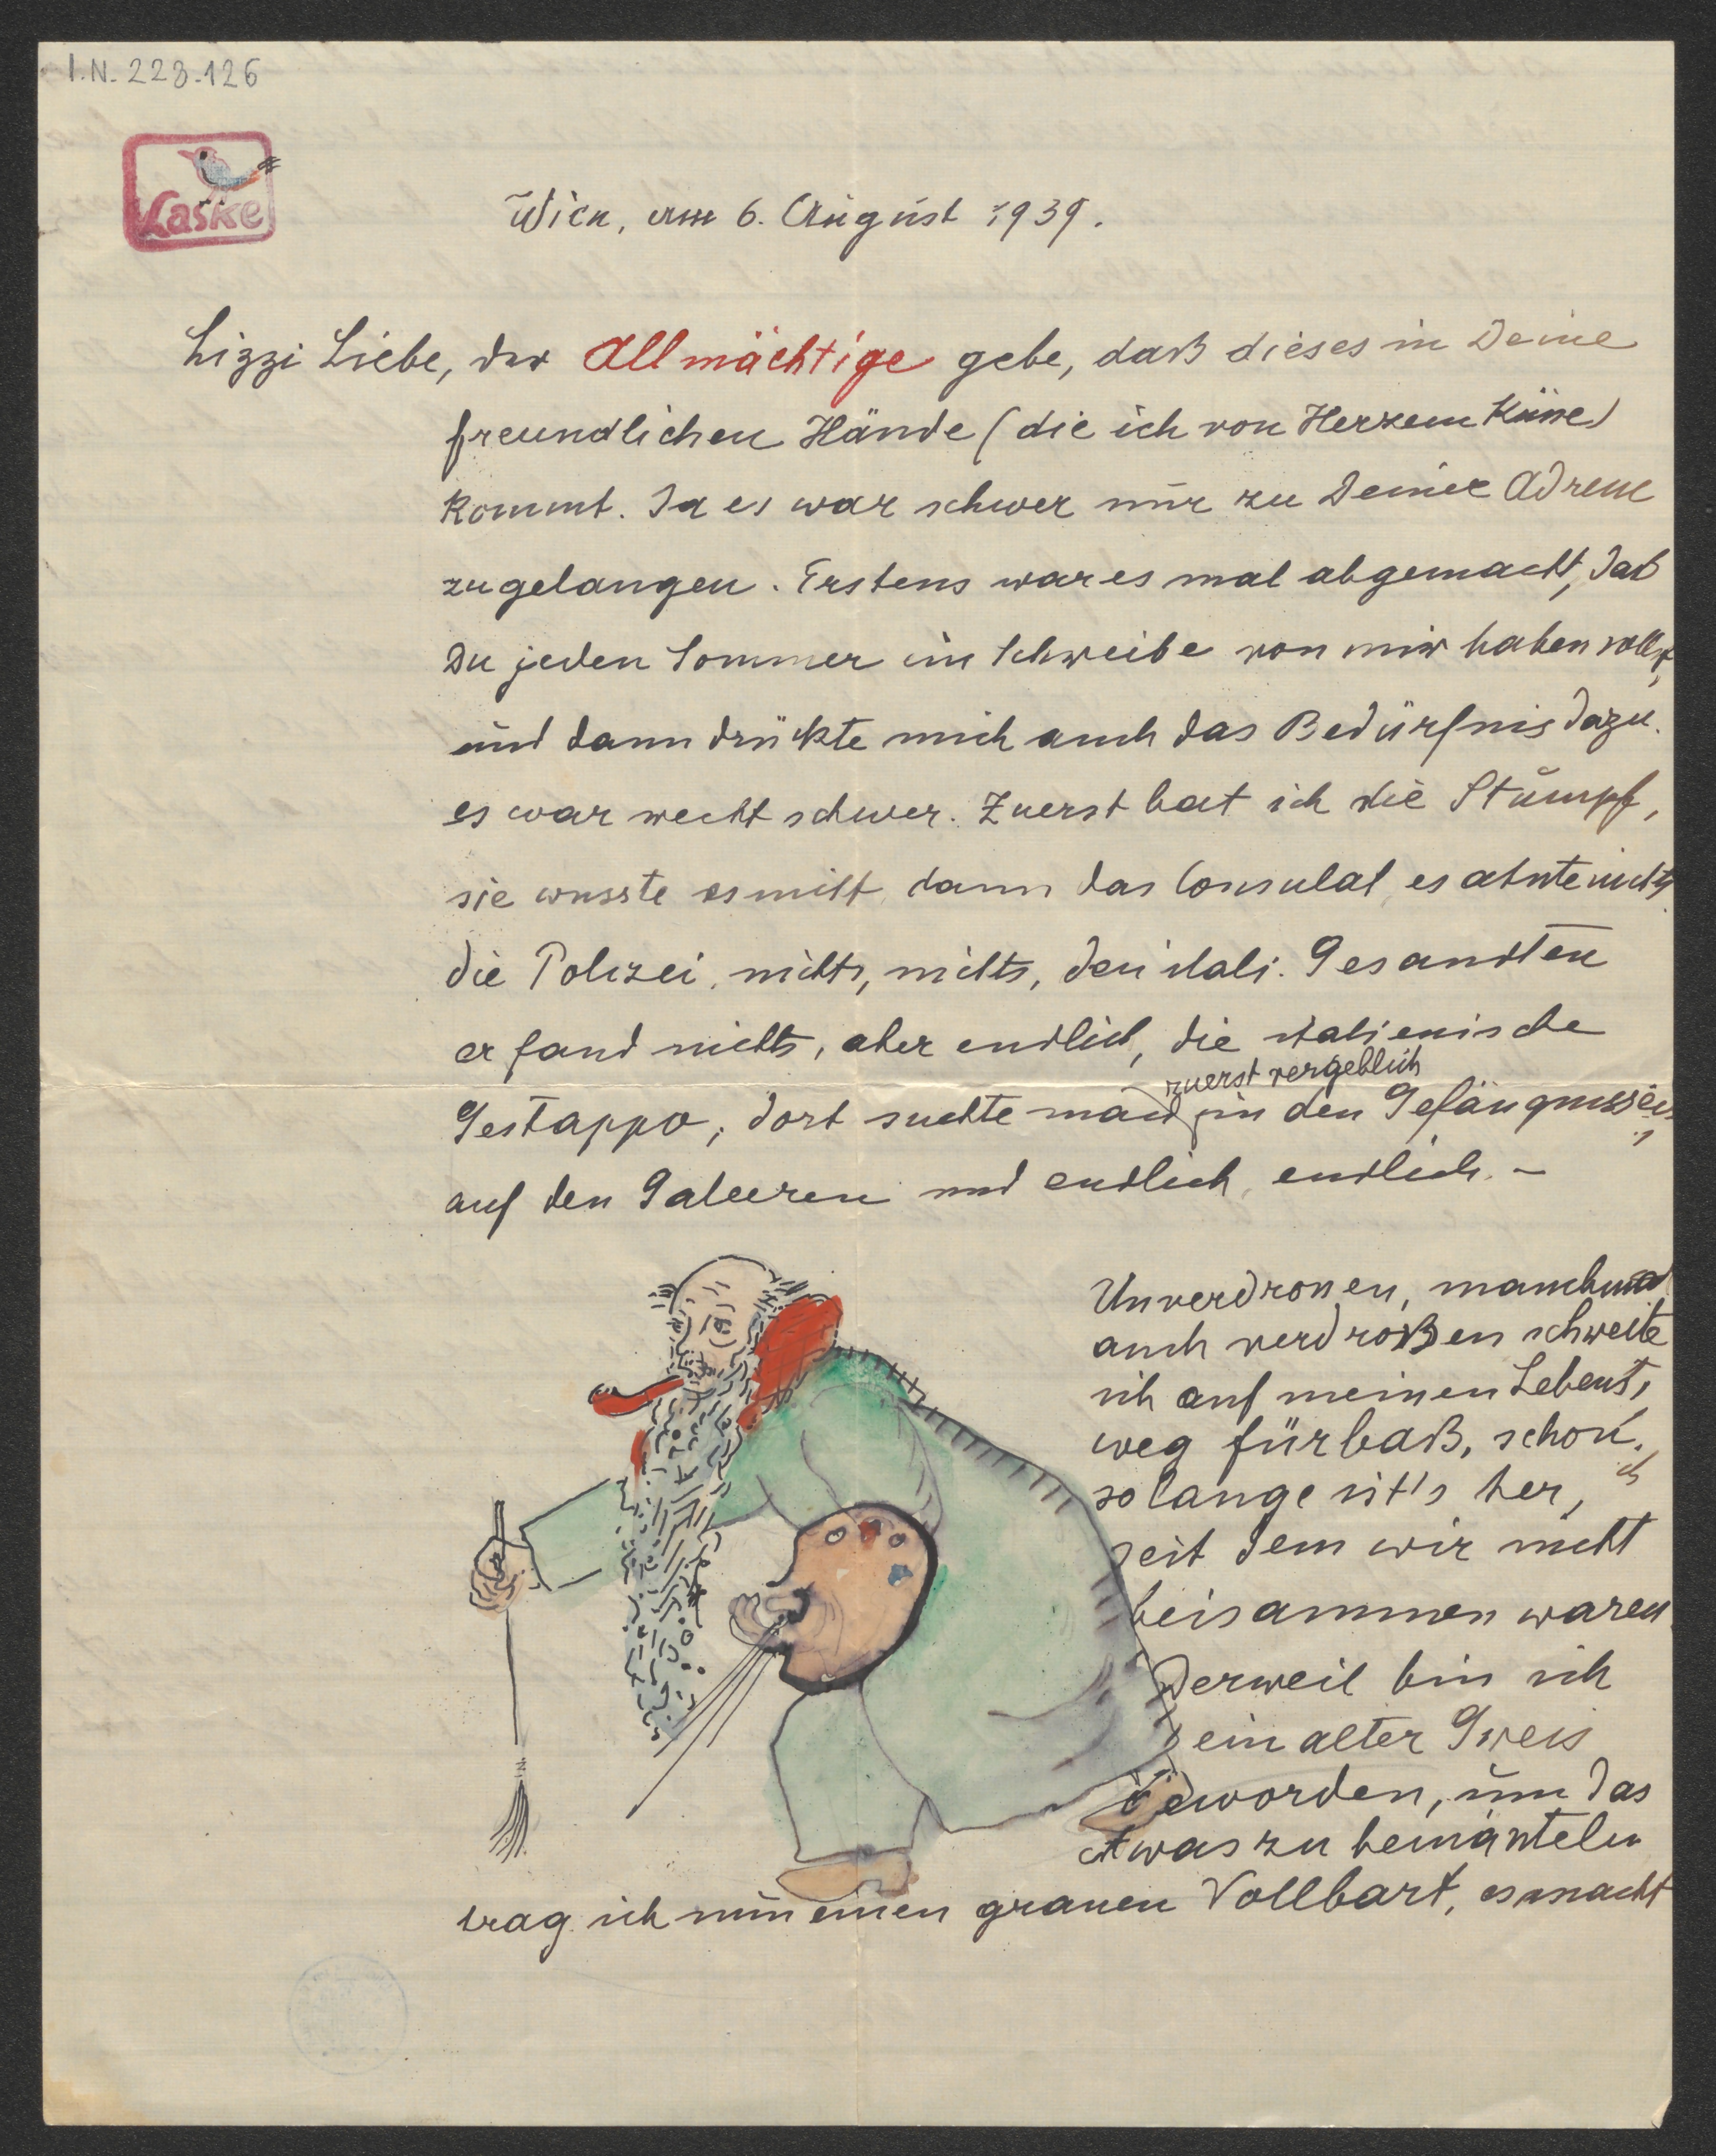 I.N. 223.126
Laske
Wien, am 6. August 1939.
Lizzi Liebe, der Allmächtige gebe, daß dieses in Deine
freundlichen Hände (die ich von Herzem Küsse)
kommt. Ja es war schwer nur zu Deiner Adresse
zu gelangen. Erstens war es mal abgemacht, daß
Du jeden Sommer ein Schreibe von mir haben sollst,
und dann drückte mich auch das Bedürfnis dazu.
es war recht schwer. Zuerst bat ich die Stumpf,
sie wusste es nicht, dann das Consulat, es ahnte nichts,
die Polizei, nichts, nichts, den itali. Gesandten
er fand nichts, aber endlich, die italienische
zuerst vergeblich
Gestappo, dort suchte man in den Gefängnissen,
auf den Galeeren und endlich, endlich. –
Unverdrossen, manchmal
auch verdroßen schreite
ich auf meinen Lebens,
weg fürbaß, schon,
so lange ist's her,
seit dem wir nicht
beisammen waren
Derweil bin ich
ein alter Greis
geworden, um das
etwas zu bemänteln
trag ich nun einen grauen Vollbart, es macht